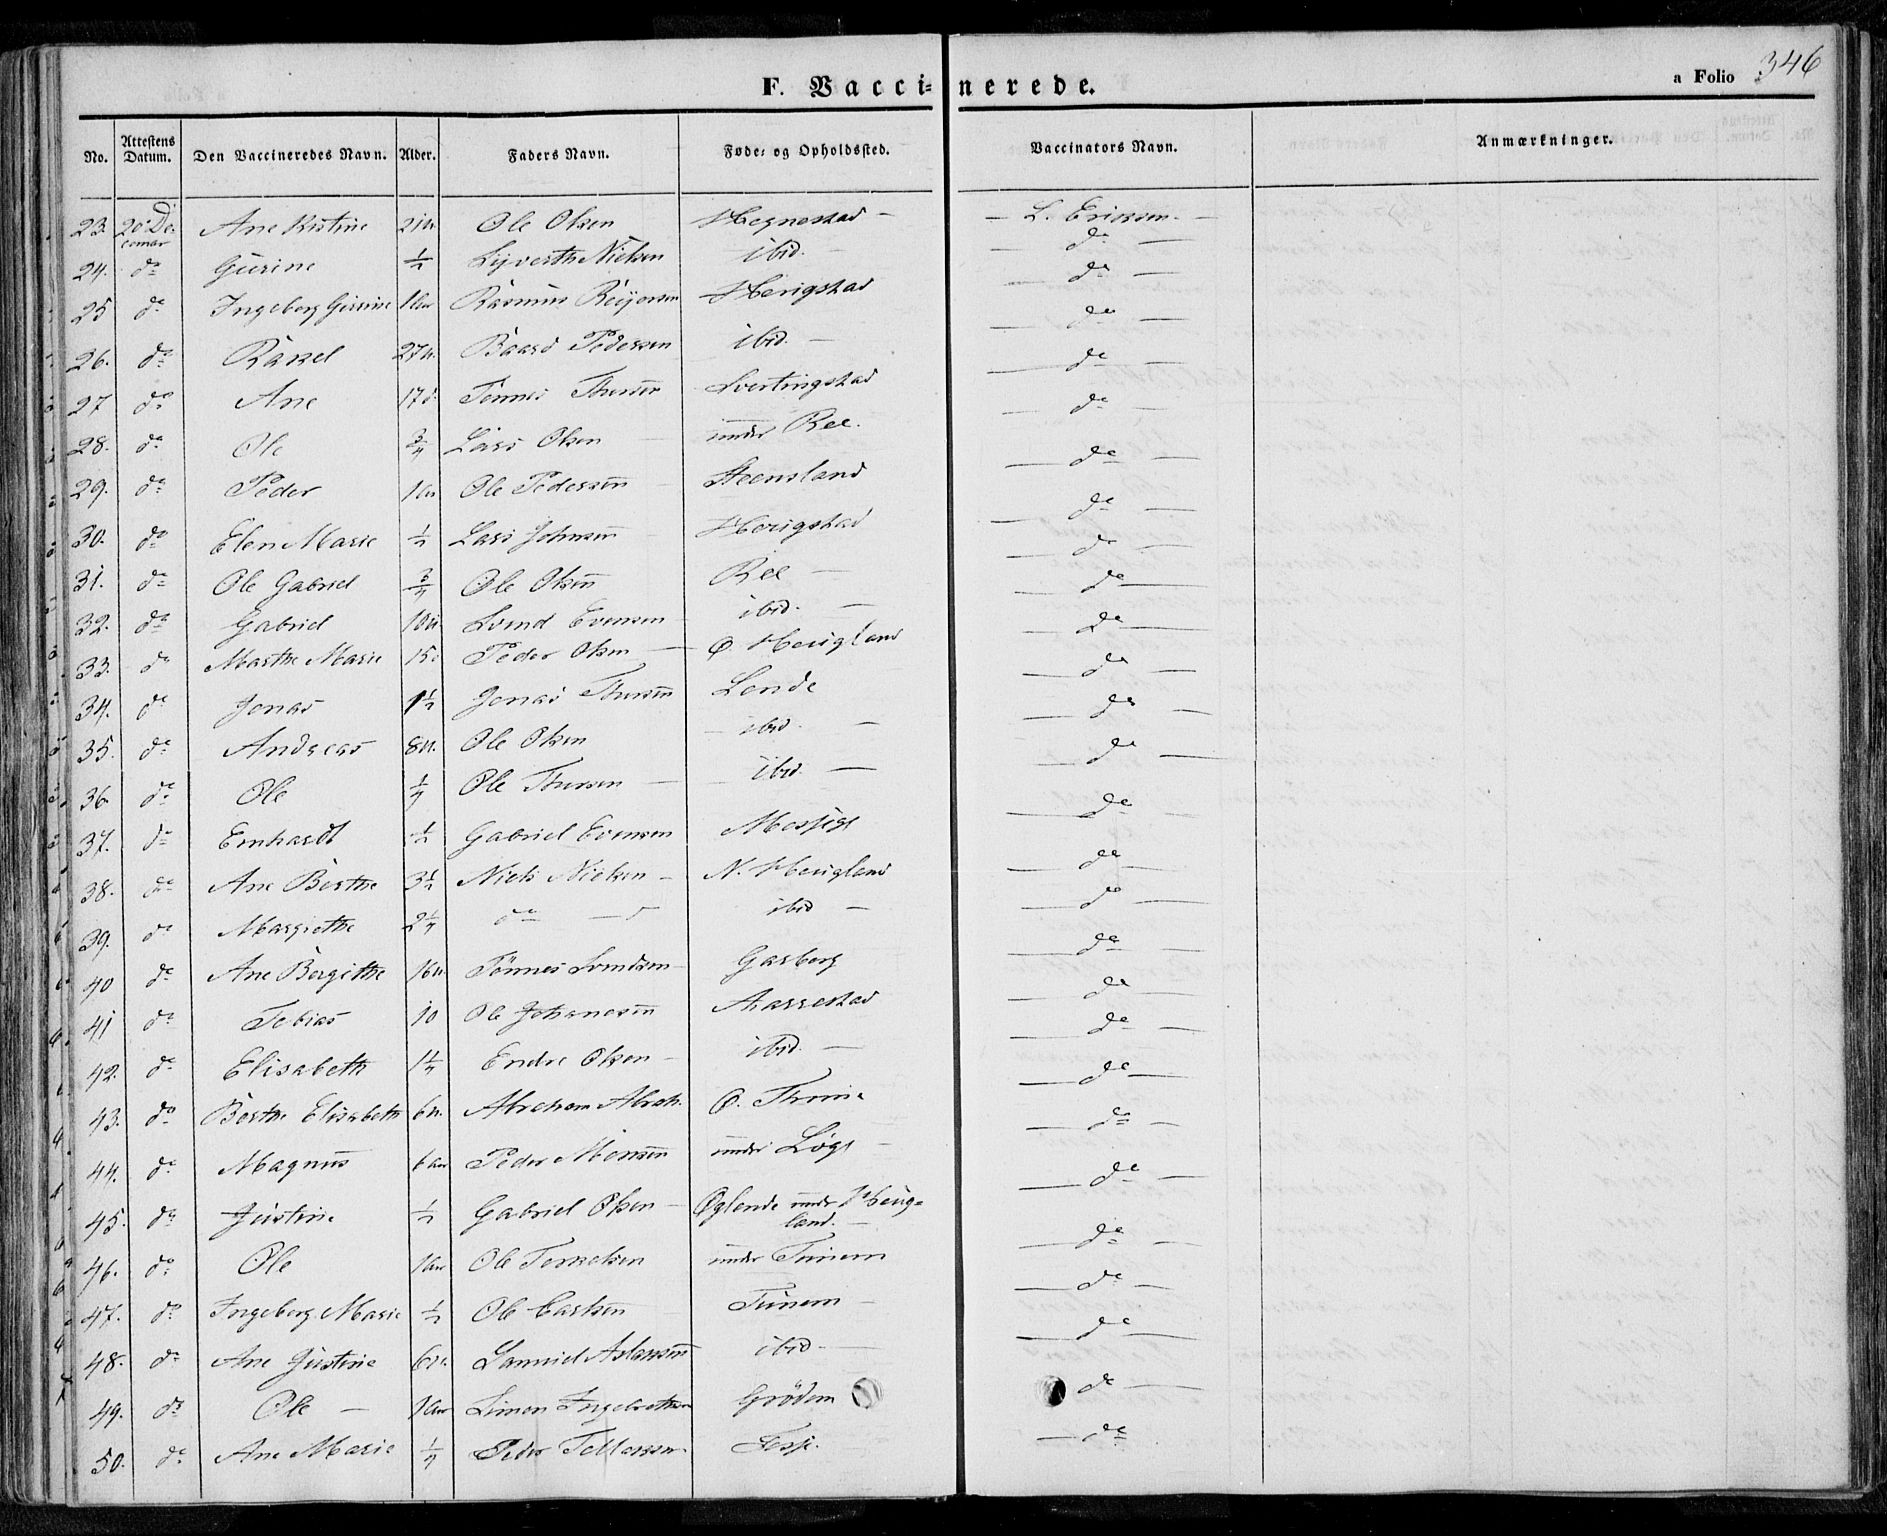 F. Vaccinerede. a Folio 346
No. Attestens Datum. Den Vaccineredes Navn. Alder. Faders Navn. Føde- og Opholdssted. Vaccinators Navn. Anmærkninger.
23. 20 De- Ane Kistine Ole Olsen Hegnestad — L. Eriksen. —
cemar
24. do Gurine ½ Nielsen ibid. do
25 do Ingeborg Gurine 1 Aar Rasmus Herigstad do
26. do Rakel Baard Pedersen ibid. do
27 do Ane Tønnes Svertingstad do
28. do Ole ¾ Lars Olsen under Ree. do
29. do Peder 1 Ole Pedersen Steensland do
30. do Elen Marie ½ Lars Johnsen Herigstad do
31. do Ole Gabriel ¾ Ole Olsen Ree do
32. do Gabriel Svend Evensen ibid. do
33. do Marthe Marie Peder Olsen Ø. Heugland do
34. do Jonas 1½ Jonas Lende do
35. do Andreas Ole Olsen ibid. do
36. do Ole ¼ Ole ibid. do
37. do Emhardt ½ Gabriel Evensen Mossige do
38. do Ane Berthe 3½ Niels Nielsen N. Heugland do
39. do Margrethe 2¼ do ibid do
40 do Ane Bergithe Tønnes Svendsen Garborg do
41 do Tobias 10 Ole Johanesen Aarrestad do
42. do Elisabeth 1¼ Endre Olsen ibid. do
43. do Berthe Elisabeth Abraham Abrah. Ø. Thime do
44. do Magnus 6 Aar Peder Monsen under Løge do
45. do Justine ½ Gabriel Olsen Øglende under Heug-
land. do
46. do Ole 1 Aar Ole Torkelsen under Tunem do
47. do Ingeborg Marie ½ Ole Carlsen Tunem do
48. do Ane Justine Samuel Aslaksen ibid do
49. do Ole — 1 Aar Simon Ingebrethsen Grødem do
50. do Ane Marie ¼ Peder Tollaksen Fosse. do